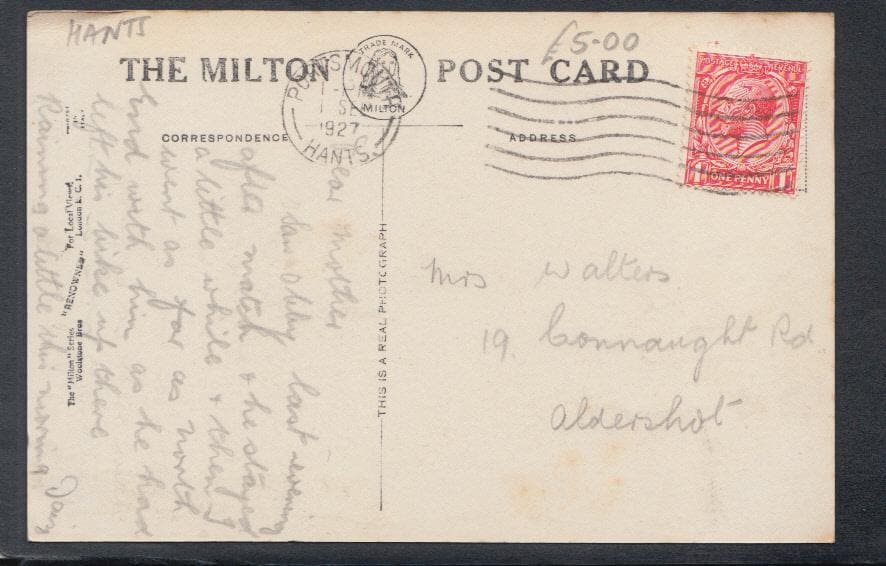 HANTS
£5-00
THE MILTON
POST CARD
TRADE MARK
MILTON
PORTSMOUTH
SE
1927
HANTS.
CORRESPONDENCE
ADDRESS
POSTAGE REVENUE
ONE PENNY
1
Dear Mother
Saw Abby last evening
after match & he stayed
a little while & then I
went as far as north
End with him as he had
left his bike up there
Raining a little this morning
The "Milton" Series "RENOWNED" For Local Views
Woolstone Bros London E.C.1.
THIS IS A REAL PHOTOGRAPH
Mrs Walters
19 Connaught Rd
Aldershot